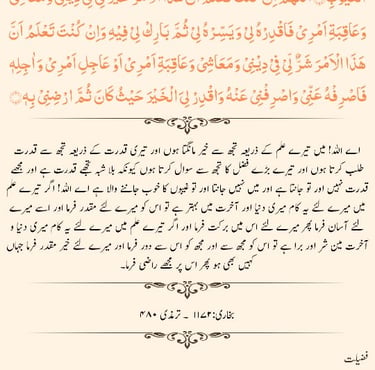 وَعَاقِبَةِ اَمْرِیْ فَاقْدِرْهُ لِیْ وَيَسِّرْهُ لِیْ ثُمَّ بَارِكْ لِیْ فِيْهِ وَاِنْ كُنْتَ تَعْلَمُ اَنَّ
هٰذَا الْاَمْرَ شَرٌّ لِّیْ فِیْ دِيْنِیْ وَمَعَاشِیْ وَعَاقِبَةِ اَمْرِیْ اَوْ عَاجِلِ اَمْرِیْ وَاٰجِلِهٖ
فَاصْرِفْهُ عَنِّیْ وَاصْرِفْنِیْ عَنْهُ وَاقْدِرْ لِیَ الْخَيْرَ حَيْثُ كَانَ ثُمَّ اَرْضِنِیْ بِهٖ
اے اللہ! میں تیرے علم کے ذریعہ تجھ سے خیر مانگتا ہوں اور تیری قدرت کے ذریعہ تجھ سے قدرت
طلب کرتا ہوں اور تیرے بڑے فضل کا تجھ سے سوال کرتا ہوں کیونکہ بلا شبہ تجھے قدرت ہے اور مجھے
قدرت نہیں اور تو جانتا ہے اور میں نہیں جانتا اور تو غیبوں کا خوب جاننے والا ہے اے اللہ! اگر تیرے علم
میں میرے لئے یہ کام میری دنیا اور آخرت میں بہتر ہے تو اس کو میرے لئے مقدر فرما اور اسے میرے
لئے آسان فرما پھر میرے لئے اس میں برکت فرما اور اگر تیرے علم میں میرے لئے یہ کام میری دنیا و
آخرت مین شر اور برا ہے تو اس کو مجھ سے اور مجھ کو اس سے دور فرما اور میرے لئے خیر مقدر فرما جہاں
کہیں بھی ہو پھر اس پر مجھے راضی فرما۔
بخاری: ۱۱۷۲ ۔ ترمذی ۴۸۰
فضیلت